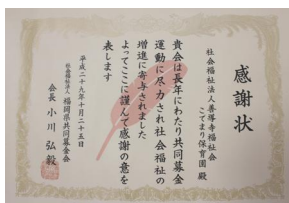 感謝状
社会福祉法人善導寺福祉会
こでまり保育園 殿
貴会は長年にわたり共同募金
運動に尽力され社会福祉の
増進に寄与されました
よってここに謹んで感謝の意を
表します
平成二十九年十月二十五日
社会福祉法人 福岡県共同募金会
会長 小川 弘毅